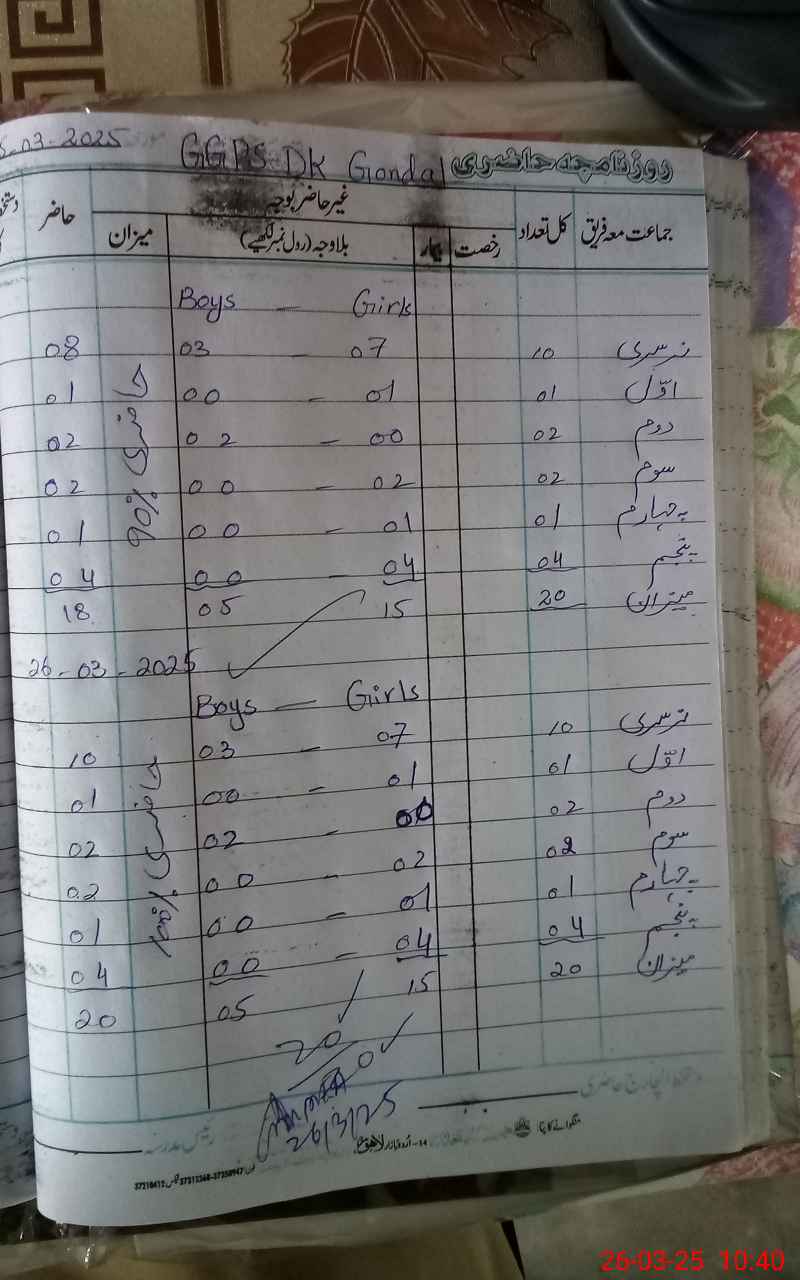 5-03-2025 GGPS DK Gondal روزنامچہ حاضری
جماعت معہ فریق کل تعداد غیر حاضر بوجہ حاضر
رخصت بیمار بلاوجہ (رول نمبر لکھیے) میزان
Boys — Girls
نرسری 10 07 - 03 08
اوّل 01 01 - 00 01
دوم 02 00 - 02 02
سوم 02 02 - 00 02
چہارم 01 01 - 00 01
پنجم 04 04 - 00 04
میزان 20 15 05 18
حاضری 90%
26-03-2025
Boys — Girls
نرسری 10 07 - 03 10
اوّل 01 01 - 00 01
دوم 02 00 - 02 02
سوم 02 02 - 00 02
چہارم 01 01 - 00 01
پنجم 04 04 - 00 04
میزان 20 15 05 20
حاضری 100%
20
0
26/3/25
دستخط انچارج حاضری
رئیس مدرسہ
26-03-25 10:40